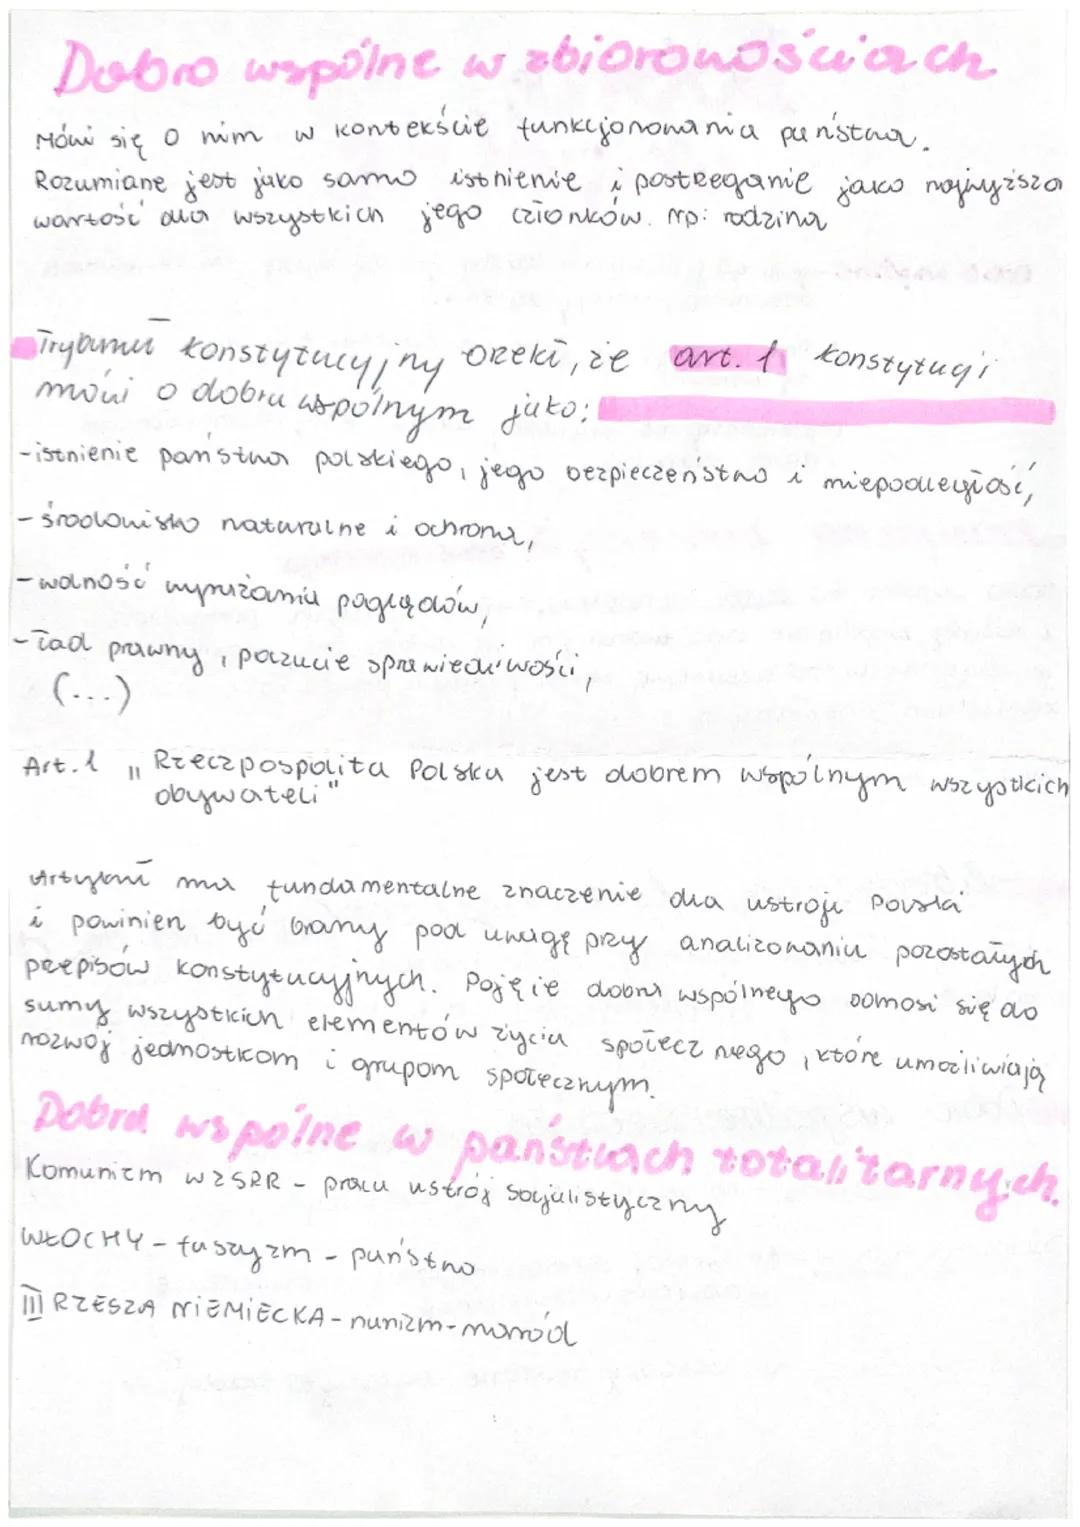 Dobro wspólne w zbiorowościach
Mówi się o nim w kontekście funkcjonowania państwa.
Rozumiane jest jako samo istnienie i postrzeganie jako najwyższa
wartość dla wszystkich jego członków. np: rodzina
Trybunał konstytucyjny orzekł, że art. 1 konstytucji
mówi o dobru wspólnym jako:
-istnienie państwa polskiego, jego bezpieczeństwo i niepodległość,
-środowisko naturalne i ochrona,
-wolność wyrażania poglądów,
-ład prawny, poczucie sprawiedliwości,
(...)
Art. 1 „Rzeczpospolita Polska jest dobrem wspólnym wszystkich
obywateli"
Artykuł ma fundamentalne znaczenie dla ustroju Polski
i powinien być brany pod uwagę przy analizowaniu pozostałych
przepisów konstytucyjnych. Pojęcie dobra wspólnego odnosi się do
sumy wszystkich elementów życia społecznego, które umożliwiają
rozwój jednostkom i grupom społecznym.
Dobra wspólne w państwach totalitarnych.
Komunizm w ZSRR - praca ustrój socjalistyczny
WŁOCHY - faszyzm - państwo
III RZESZA NIEMIECKA - nanizm - naród